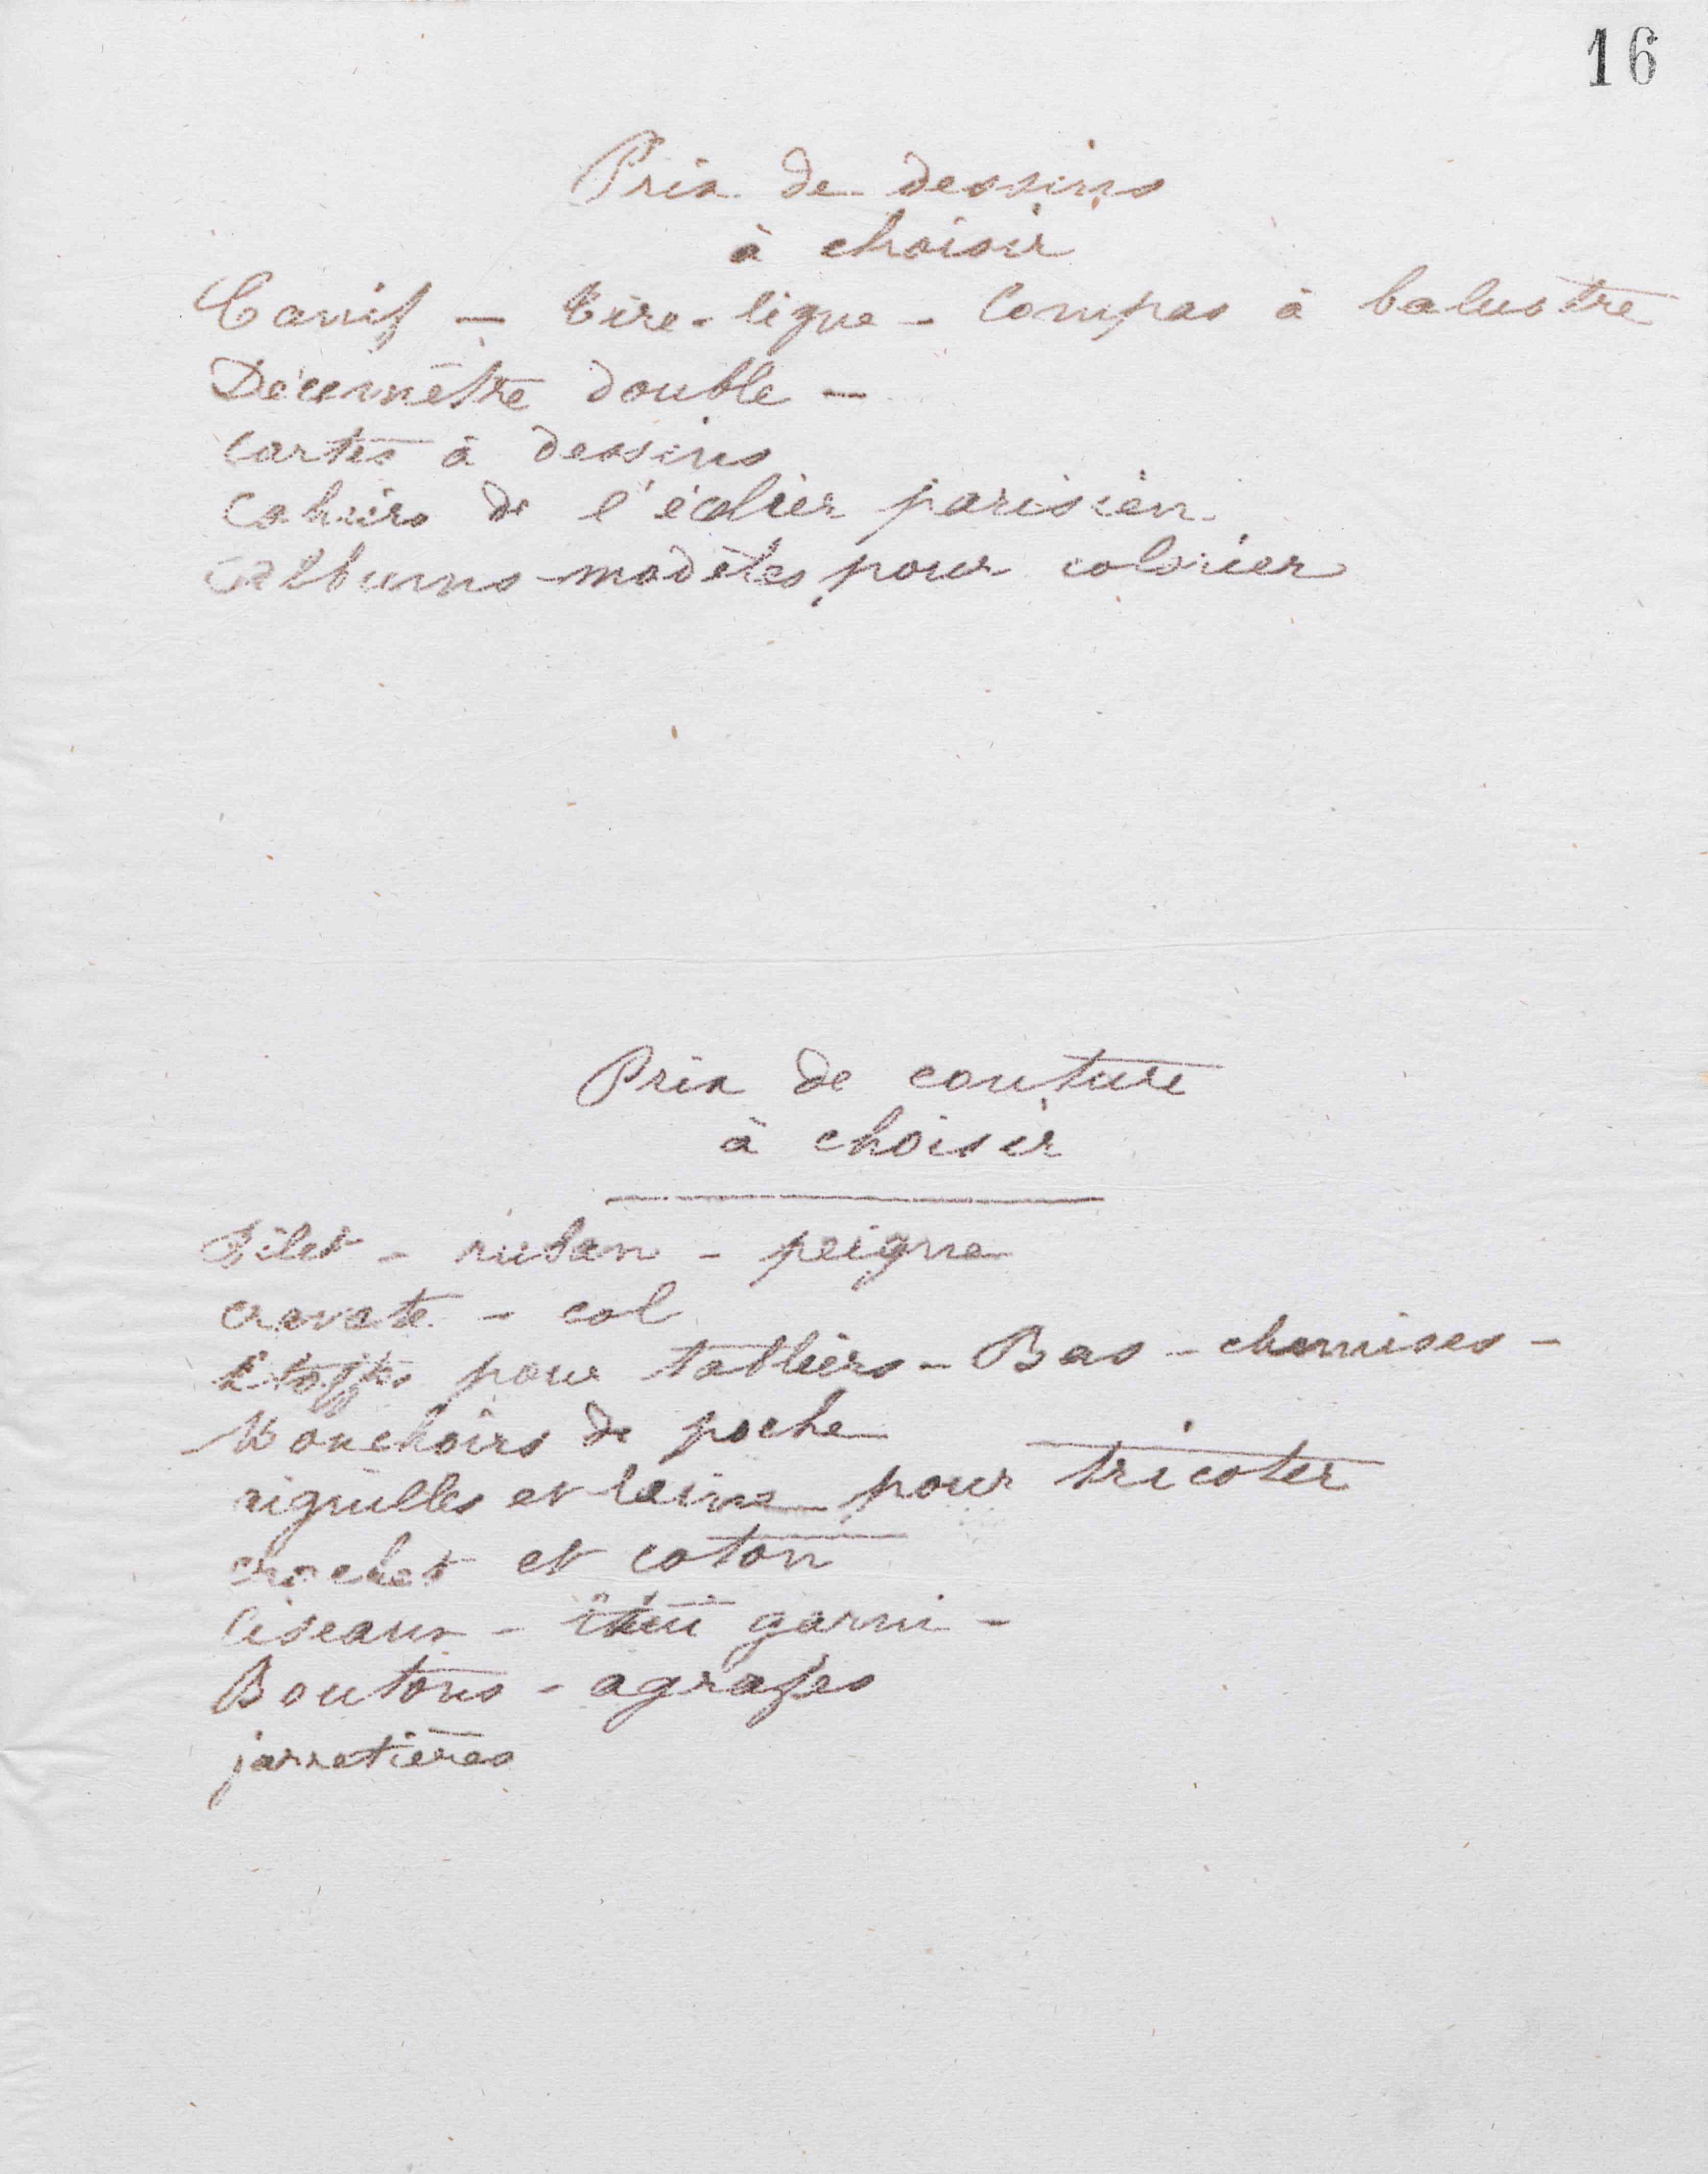 16
Prix de dessins
à choisir
Canif - tire-ligne - Compas à balustre
Décimètre double -
Cartes à dessins
Cahiers de l'écolier parisien
Albums-modèles pour colorier
Prix de couture
à choisir
Filet - ruban - peigne
cravate - col
Etoffes pour tabliers - Bas - chemises -
Mouchoirs de poche
aiguilles et laine pour tricoter
crochet et coton
Ciseaux - étui garni -
Boutons - agrafes
jarretières